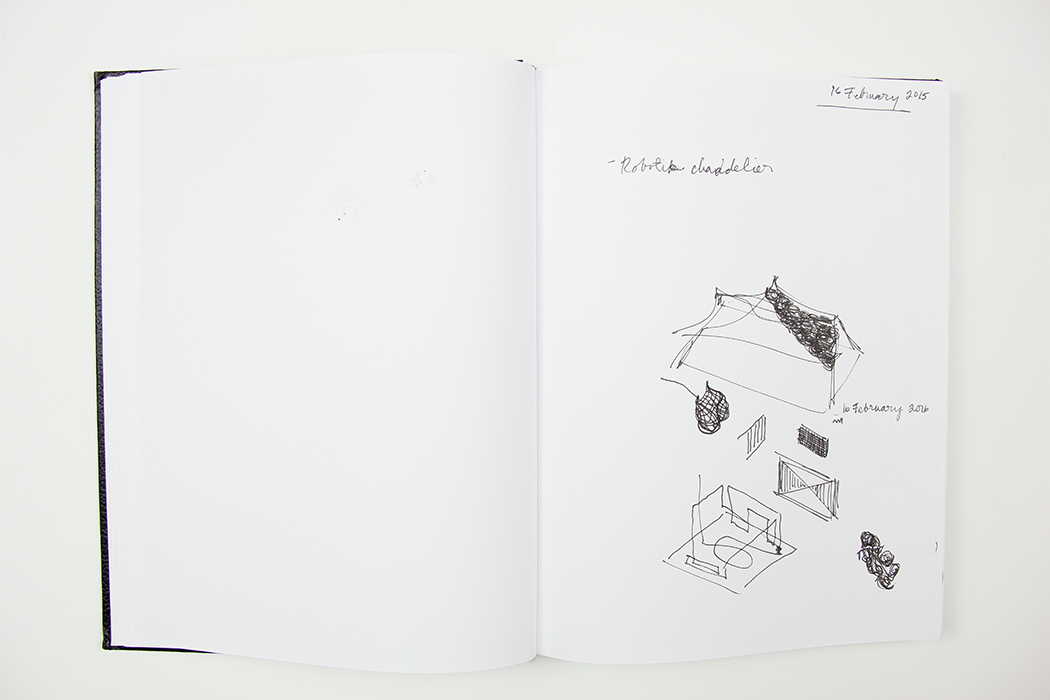 16 February 2015
- Robotik chandelier
16 February 2016